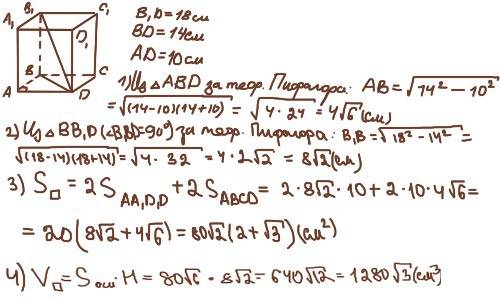 B₁ C₁
A₁ D₁
B C
A D
B₁D=18см
BD=14см
AD=10см
1) Из △ABD за теор. Пифагора: AB=√(14²-10²)
=√((14-10)(14+10))=√(4·24)=4√6(см)
2) Из △BB₁D(∠B₁BD=90°) за теор. Пифагора: B₁B=√(18²-14²)=
√((18-14)(18+14))=√(4·32)=4·2√2=8√2(см)
3) S▱=2S_AA₁D₁D+2S_ABCD=2·8√2·10+2·10·4√6=
=20(8√2+4√6)=80√2(2+√3)(см²)
4) V▱=Sосн·H=80√6·8√2=640√12=1280√3(см³)